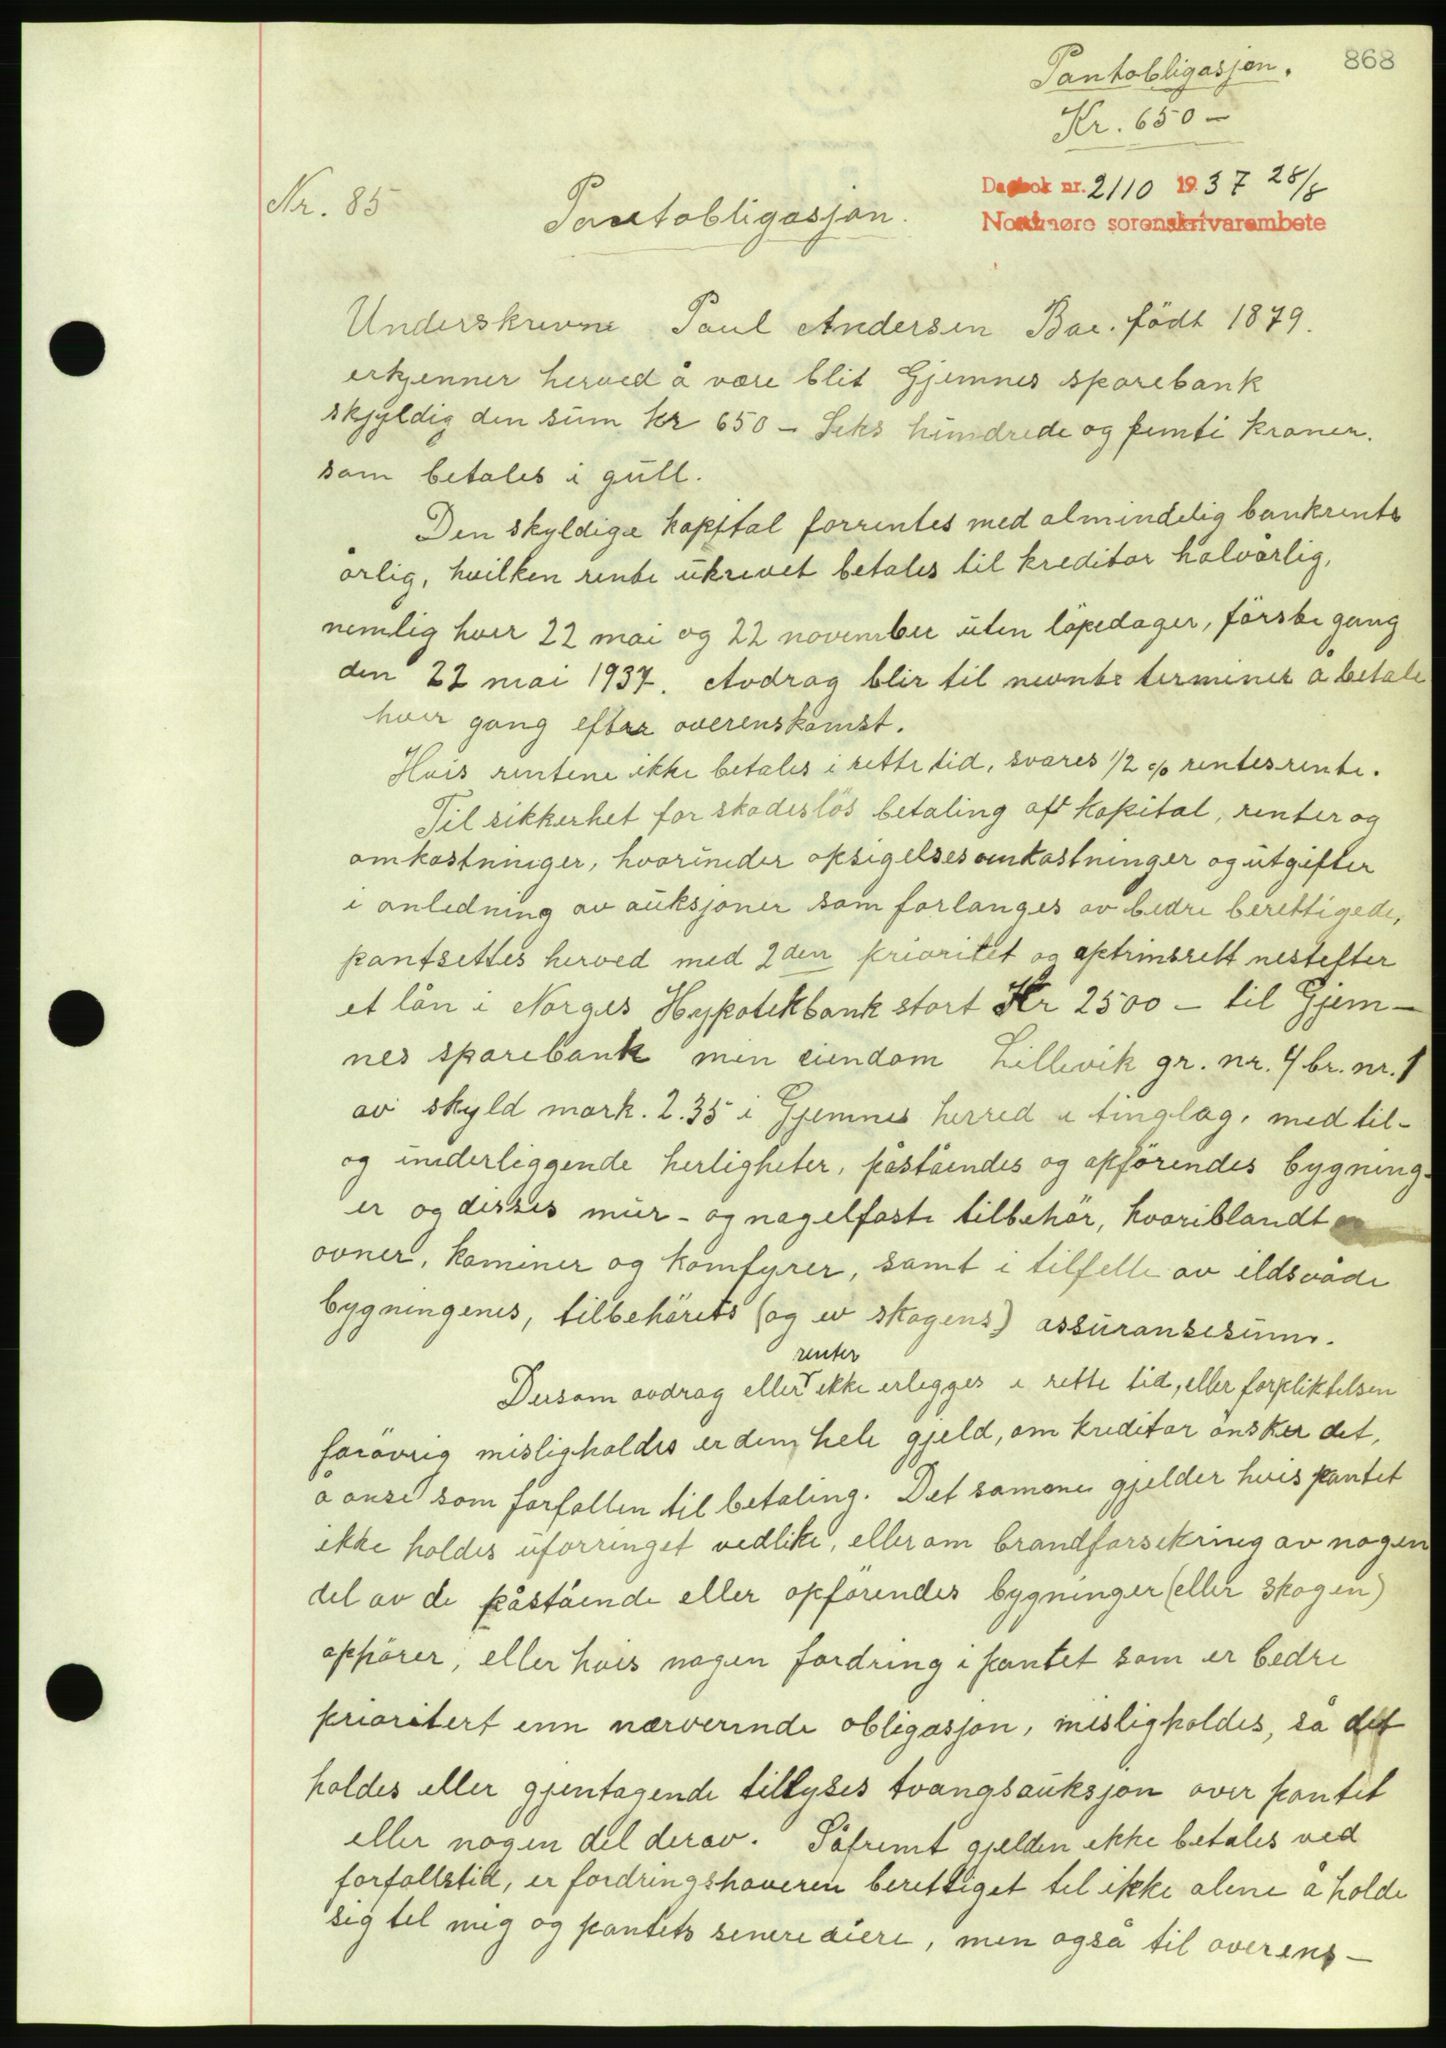 868
Pantobligasjon.
Kr. 650 —
Dagbok nr. 2110 1937 28/8
Nordmøre sorenskrivarembete
Nr. 85
Pantobligasjon.
Underskrevne Paul Andersen Bae. född 1879.
erkjenner herved å være blit Gjemnes sparebank
skjyldig den sum kr 650 — Seks hundrede og femti kroner.
som betales i gull.
Den skyldige kapital forrentes med almindelig bankrente
årlig, hvilken rente ukrevet betales til kreditor halvårlig,
nemlig hver 22 mai og 22 november uten löpedager, förste gang
den 22 mai 1937. Avdrag blir til nevnte terminer å betale
hver gang efter overenskomst.
Hvis rentene ikke betales i rette tid, svares 1/2 % rentesrente.
Til sikkerhet for skadeslös betaling aft kapital, renter og
omkostninger, hvorunder opsigelsesomkostninger og utgifter
i anledning av auksjoner som forlanges av bedre berettigede,
pantsettes herved med 2den prioritet og optrinsrett nestefter
et lån i Norges Hypotekbank stort Kr 2500 — til Gjem-
nes sparebank min eiendom Lillevik gr. nr. 4 br. nr. 1
av skyld mark. 2.35 i Gjemnes herred u tinglag, med til-
og underliggende herligheter, påståendes og opförendes bygning-
er og disses mur- og nagelfaste tilbehör, hvoriblandt
ovner, kaminer og komfyrer, samt i tilfelle av ildsvåde
bygningenes, tilbehörets (og ev skogens) assuransesum.
renter
Dersom avdrag eller ikke erlegges i rette tid, eller forpliktelsen
forövrig misligholdes er den hele gjeld, om kreditor önsker det,
å anse som forfallen til betaling. Det samme gjelder hvis pantet
ikke holdes uforringet vedlike, eller om brandforsikring av nogen
del av de påstående eller opförendes bygninger (eller skogen)
ophörer, eller hvis nogen fordring i pantet som er bedre
prioritert enn nærverende obligasjon, misligholdes, så det
holdes eller gjentagende tillyses tvangsauksjon over pantet
eller nogen del derav. Såfremt gjelden ikke betales ved
forfallstid, er fordringshaveren berettiget til ikke alene å holde
sig til mig og pantets senere eiere, men også til overens-